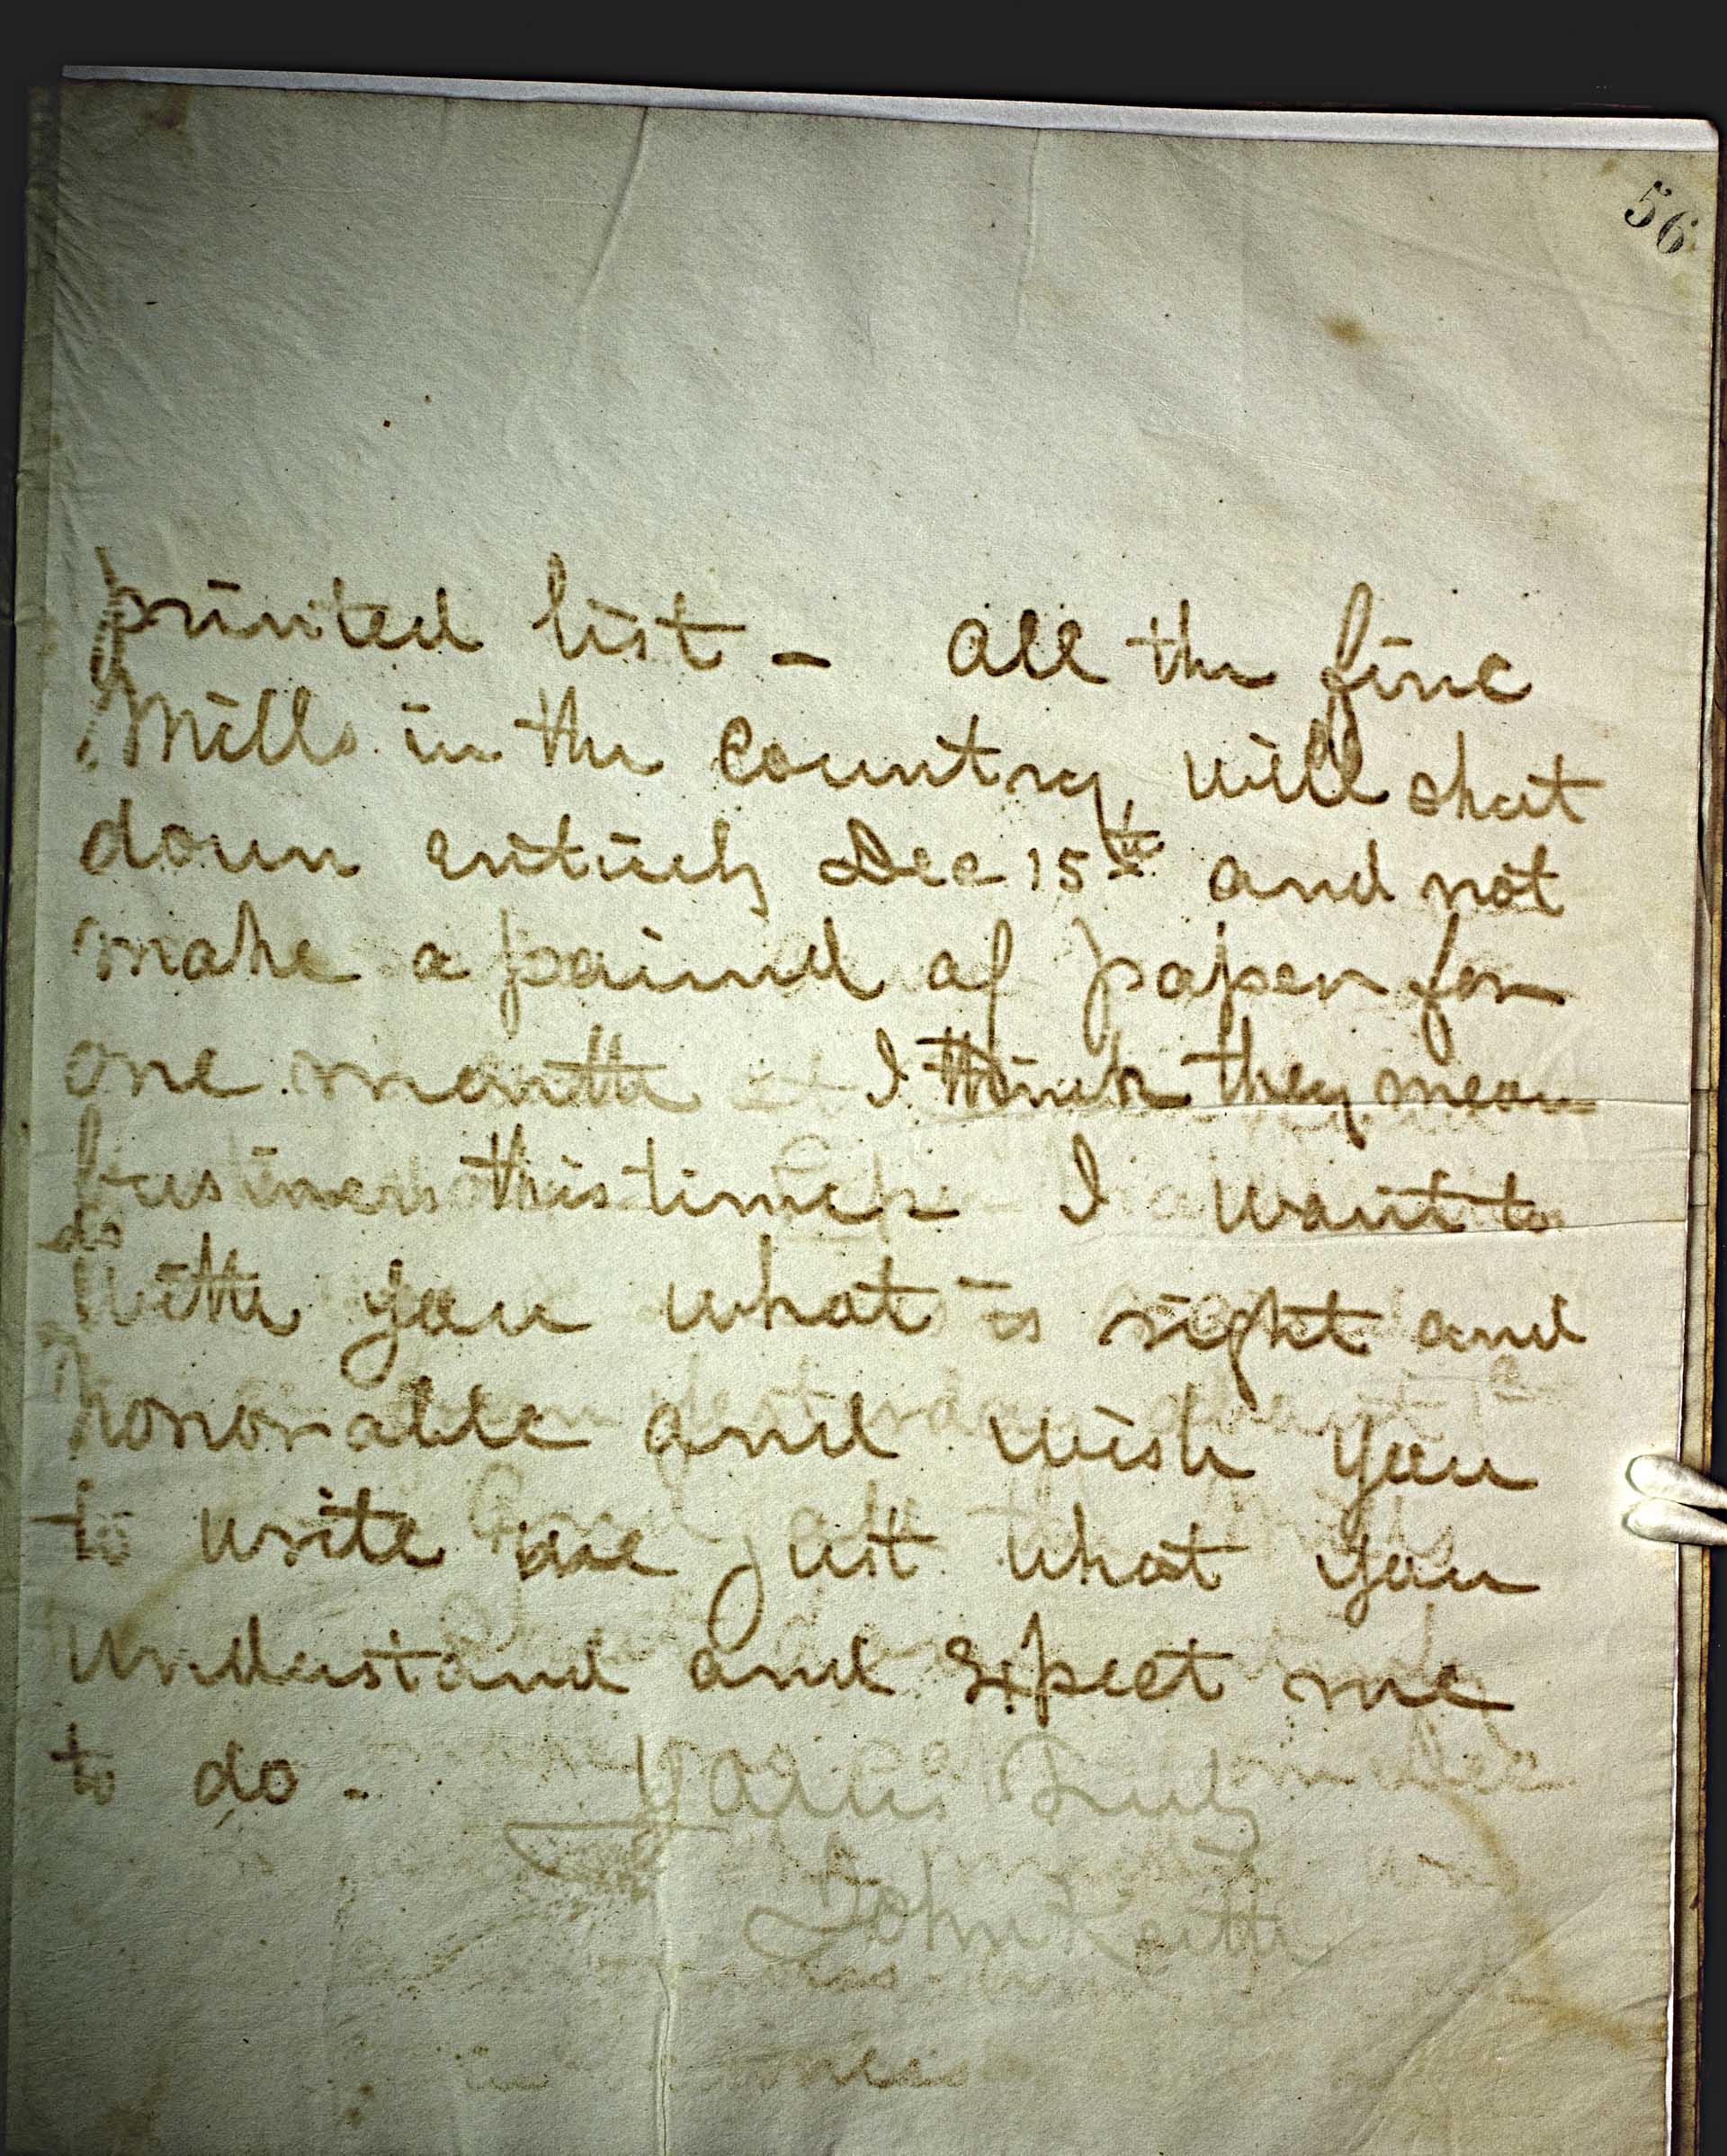 56
printed list - All the fine
Mills in the Country, will shut
down entirely Dec 15th and not
make a pound of paper for
one month I think they mean
business this time - I want to
do
with you what is right and
honorable and wish you
to write me just what you
understand and expect me
to do - Yours Truly
John Keith